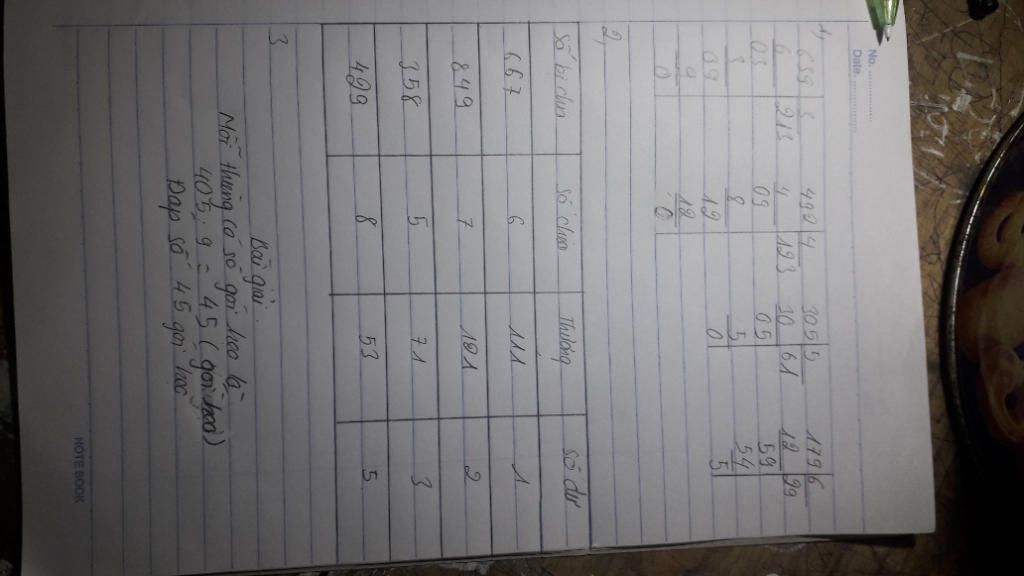 No.
Date.
1,
639 3 492 4 305 5 179 6
6 213 4 123 30 61 12 29
03 09 05 59
3 8 5 54
09 12 0 5
9 12
0 0
2,
Số bị chia Số chia Thương Số dư
667 6 111 1
849 7 121 2
358 5 71 3
429 8 53 5
3 Bài giải.
Mỗi thùng có số gói kẹo là
405 : 9 = 45 (gói kẹo)
Đáp số 45 gói kẹo
NOTE BOOK